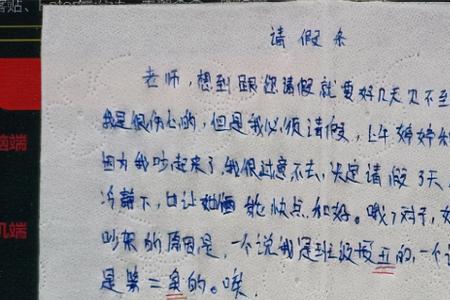 请假条
老师，想到跟您请假就要好几天见不到
我是很伤心的，但是我必须请假，上午婷婷和
因为我吵起来了，我很过意不去，决定请假3天
冷静下，也让她俩能快点和好。哦了对了，
吵架的原因是，一个说我是班级第五的，一个
是第二美的。唉
脑端
机端